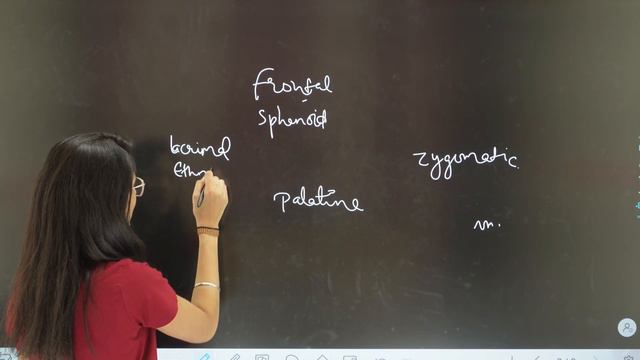 frontal
sphenoid
lacrimal
Ethm
zygomatic
palatine
m.